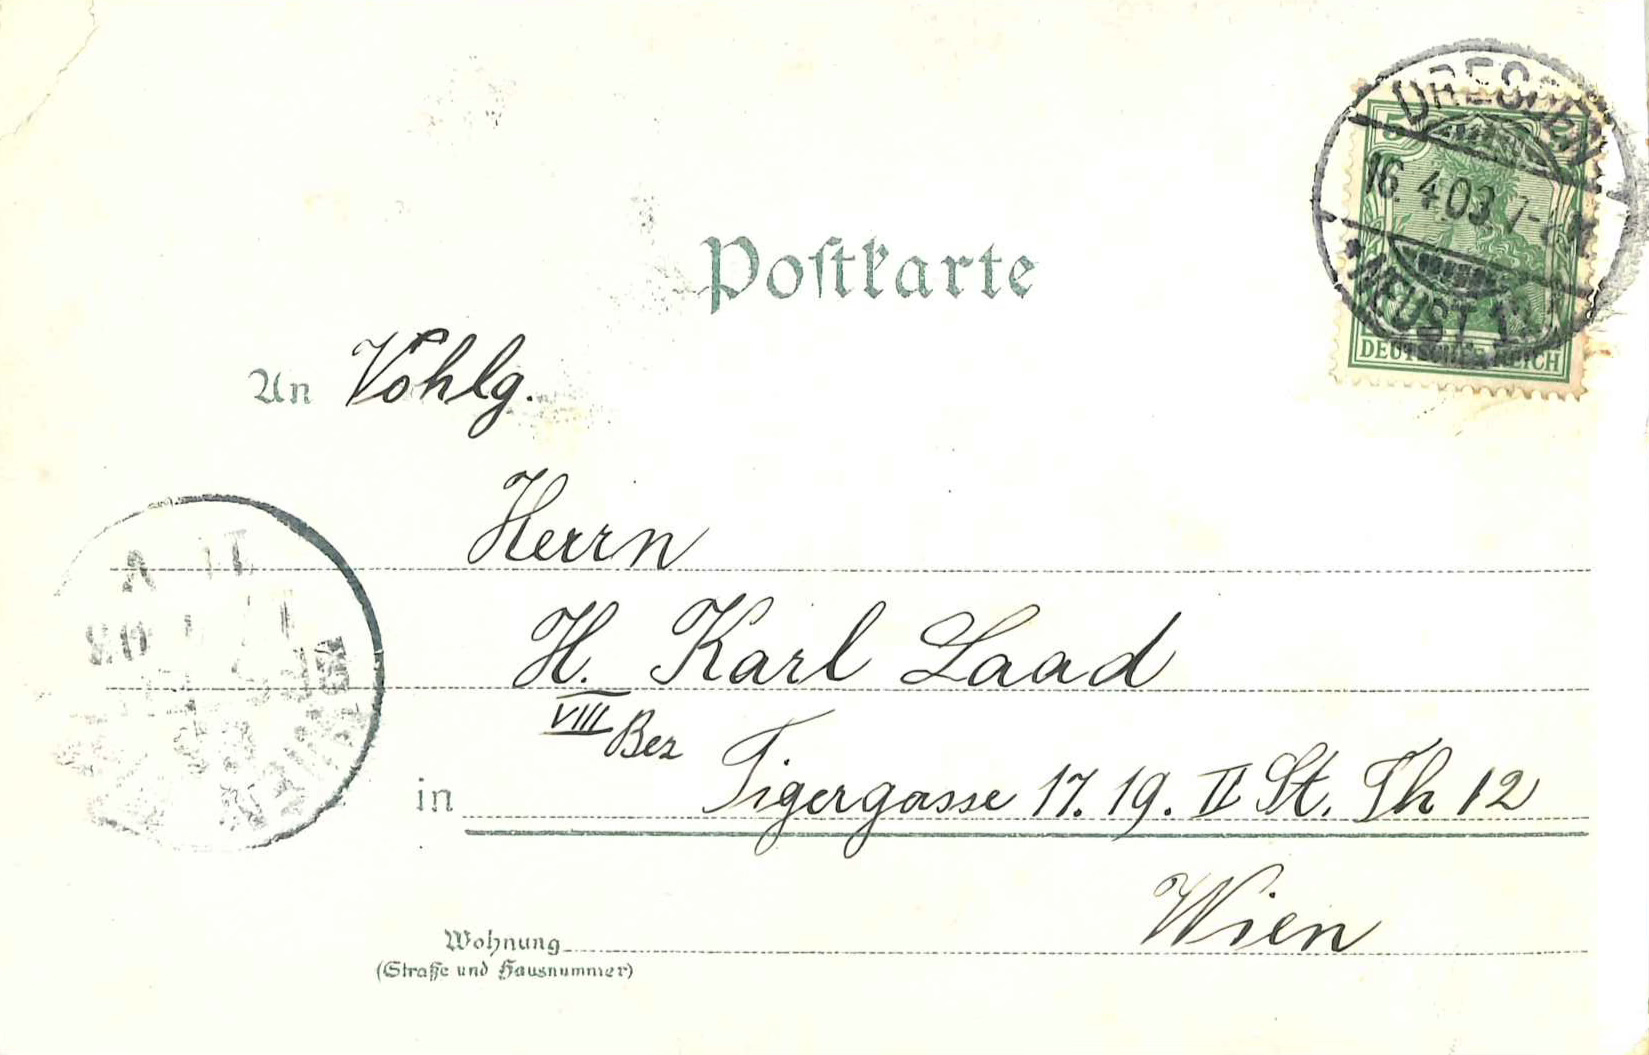 Postkarte
DRESDEN
5
16. 4.03.
NEUST.
DEUTSCHES REICH
An Vohlg.
Herrn
H. Karl Laad
VIII Bez
in Tigergasse 17. 19. II St. Th 12
Wien
Wohnung
(Straße und Hausnummer)